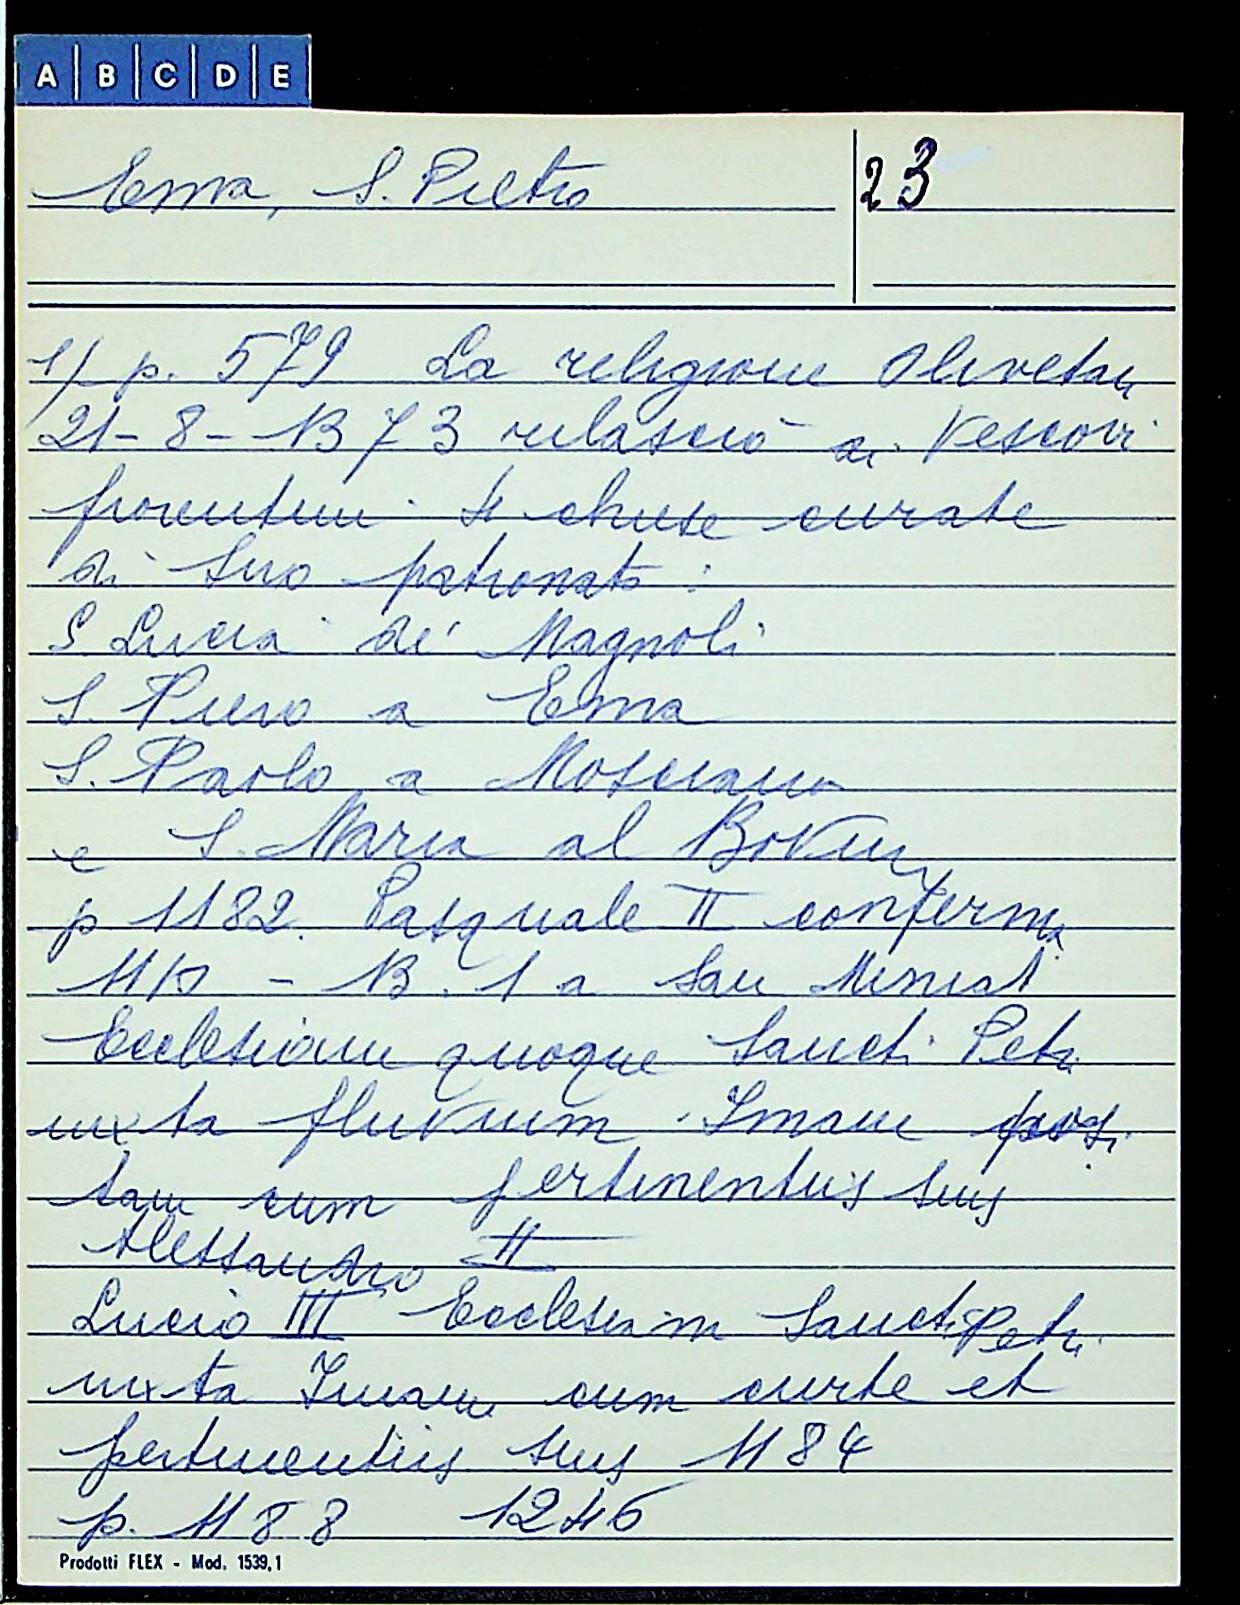 A B C D E
Ema, S. Pietro 23
1) p. 579 La religione Olivetan
21-8-1373 rilasciò ai Vescovi
fiorentini 4 chiese curate
di suo patronato :
S. Lucia de' Magnoli
S. Piero a Ema
S. Paolo a Mosciano
e S. Maria al
p 1182. Pasquale II conferma
- 13. 1 a San Miniat
Ecclesiam quoque Sancti Petri
iuxta fluvium Imam posi
tam cum pertinentiis suis
Alessandro II
Lucio III Ecclesiam Sancti Petri
iuxta Imam cum curte et
pertinentiis suis 1184
p. 1188 1246
Prodotti FLEX - Mod. 1539,1